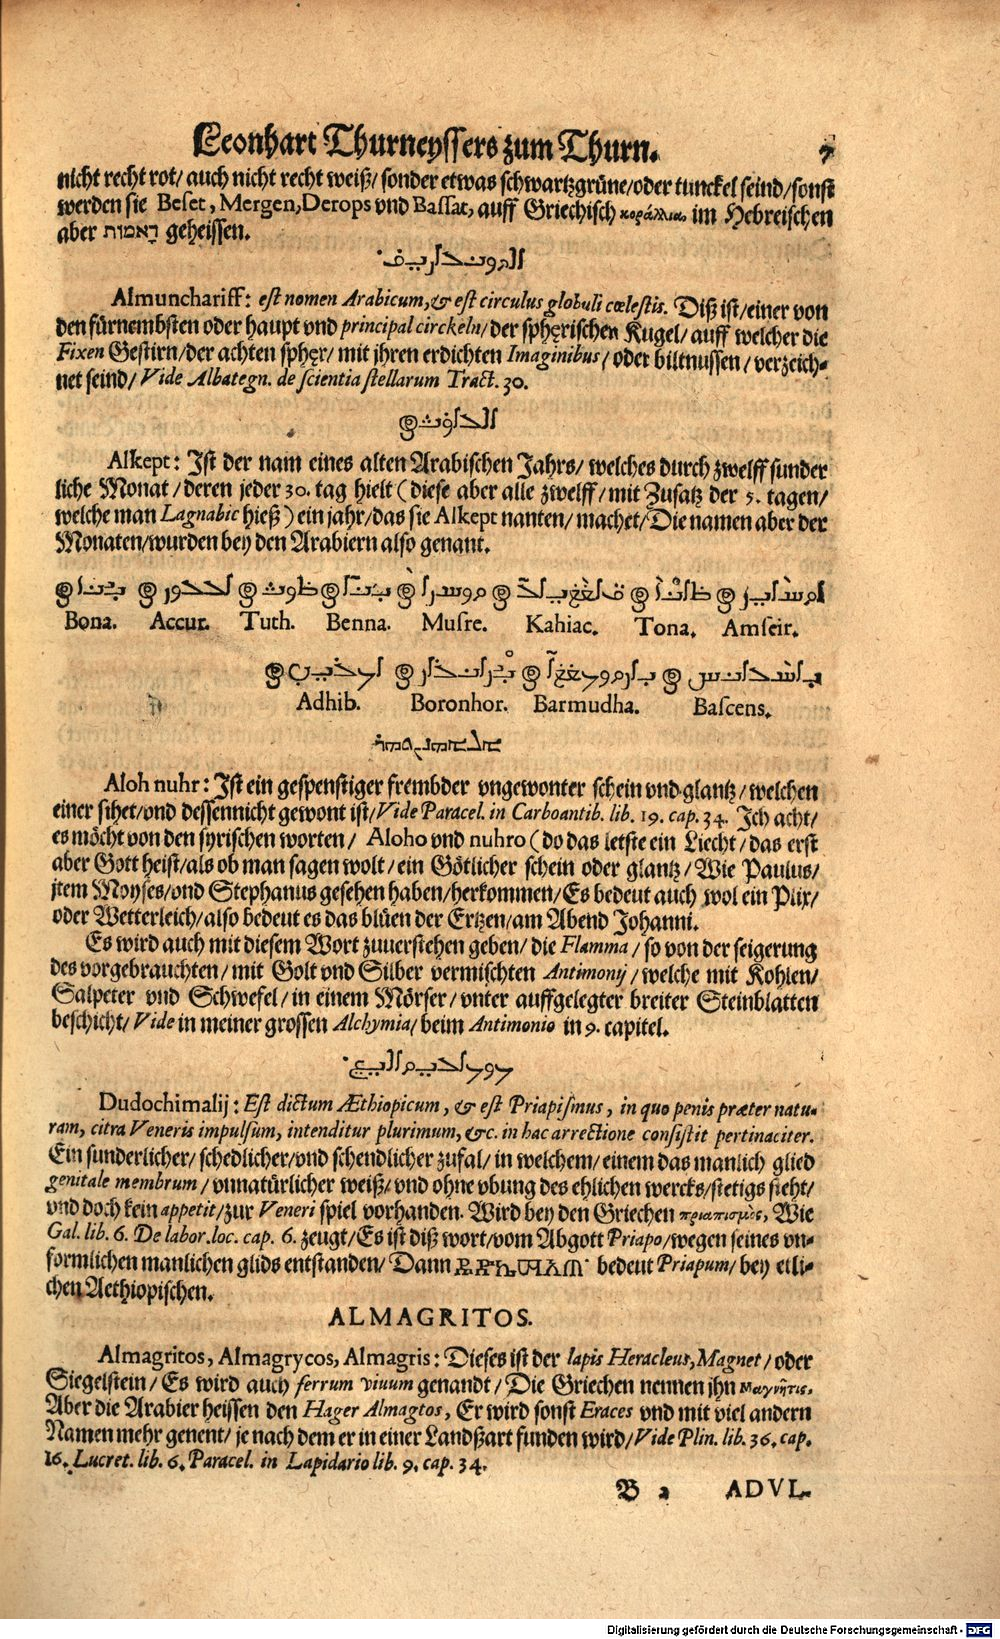 Leonhart Thurneyssers zum Thurn. 7
nicht recht rot/ auch nicht recht weiß/ sonder etwas schwartzgrüne/oder tunckel seind/sonst
werden sie Beset, Mergen, Derops vnd Bassat, auff Griechisch κοράλλια, im Hebreischen
aber רָאמוֹת geheissen.
Almunchariff: est nomen Arabicum, & est circulus globuli cœlestis. Diß ist/einer von
den fürnembsten oder haupt vnd principal circkeln/ der sphęrischen Kugel/ auff welcher die
Fixen Gestirn/der achten sphęr/ mit jhren erdichten Imaginibus/ oder biltnussen/ verzeich-
net seind/ Vide Albategn. de scientia stellarum Tract. 30.
Alkept: Ist der nam eines alten Arabischen Jahrs/ welches durch zwelff sunder
liche Monat/ deren jeder 30. tag hielt (diese aber alle zwelff/ mit Zusatz der 5. tagen/
welche man Lagnabic hieß) ein jahr/das sie Alkept nanten/ machet/ Die namen aber der
Monaten/wurden bey den Arabiern also genant.
Bona. Accur. Tuth. Benna. Musre. Kahiac. Tona. Amseir.
Adhib. Boronhor. Barmudha. Bascens.
Aloh nuhr: Ist ein gespenstiger frembder vngewonter schein vnd glantz/ welchen
einer sihet/vnd dessennicht gewont ist/Vide Paracel. in Carboantib. lib. 19. cap. 34. Ich acht/
es möcht von den syrischen worten/ Aloho vnd nuhro (do das letste ein Liecht/ das erst
aber Gott heist/als ob man sagen wolt/ ein Götlicher schein oder glantz/ Wie Paulus/
jtem Moyses/vnd Stephanus gesehen haben/herkommen/ Es bedeut auch wol ein Plix/
oder Wetterleich/also bedeut es das blüen der Ertzen/am Abend Johanni.
Es wird auch mit diesem Wort zuuerstehen geben/ die Flamma/ so von der seigerung
des vorgebrauchten/ mit Golt vnd Silber vermischten Antimonij/ welche mit Kohlen/
Salpeter vnd Schwefel/ in einem Mörser/ vnter auffgelegter breiter Steinblatten
beschicht/ Vide in meiner grossen Alchymia/ beim Antimonio in 9. capitel.
Dudochimalij: Est dictum Æthiopicum, & est Priapismus, in quo penis præter natu-
ram, citra Veneris impulsum, intenditur plurimum, &c. in hac arrectione consistit pertinaciter.
Ein sunderlicher/ schedlicher/vnd schendlicher zufal/ in welchem/ einem das manlich glied
genitale membrum/ vnnatürlicher weiß/ vnd ohne vbung des ehlichen wercks/stetigs steht/
vnd doch kein appetit/zur Veneri spiel vorhanden. Wird bey den Griechen πριαπισμὸς, Wie
Gal. lib. 6. De labor. loc. cap. 6. zeugt/ Es ist diß wort/vom Abgott Priapo/wegen seines vn-
formlichen manlichen glids entstanden/ Dann bedeut Priapum/ bey etli-
chen Aethiopischen.
ALMAGRITOS.
Almagritos, Almagrycos, Almagris: Dieses ist der lapis Heracleus, Magnet/ oder
Siegelstein/ Es wird auch ferrum vivum genandt/ Die Griechen nennen jhn μαγνῆτις.
Aber die Arabier heissen den Hager Almagtos, Er wird sonst Eraces vnd mit viel andern
Namen mehr genent/ je nach dem er in einer Landßart funden wird/ Vide Plin. lib. 36. cap.
16. Lucret. lib. 6. Paracel. in Lapidario lib. 9. cap. 34.
B 2 ADVL-
Digitalisierung gefördert durch die Deutsche Forschungsgemeinschaft - DFG